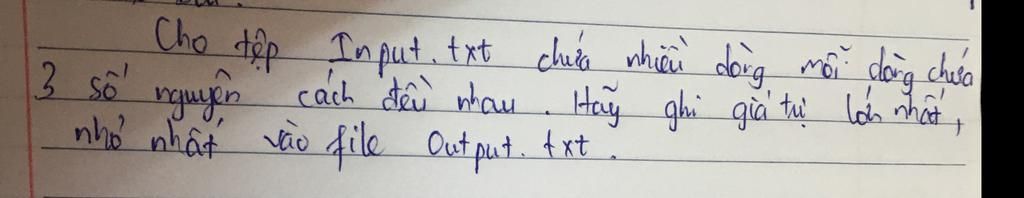 Cho tệp Input.txt chứa nhiều dòng mỗi dòng chứa
3 số nguyên cách đều nhau. Hãy ghi giá trị lớn nhất,
nhỏ nhất vào file Output.txt.